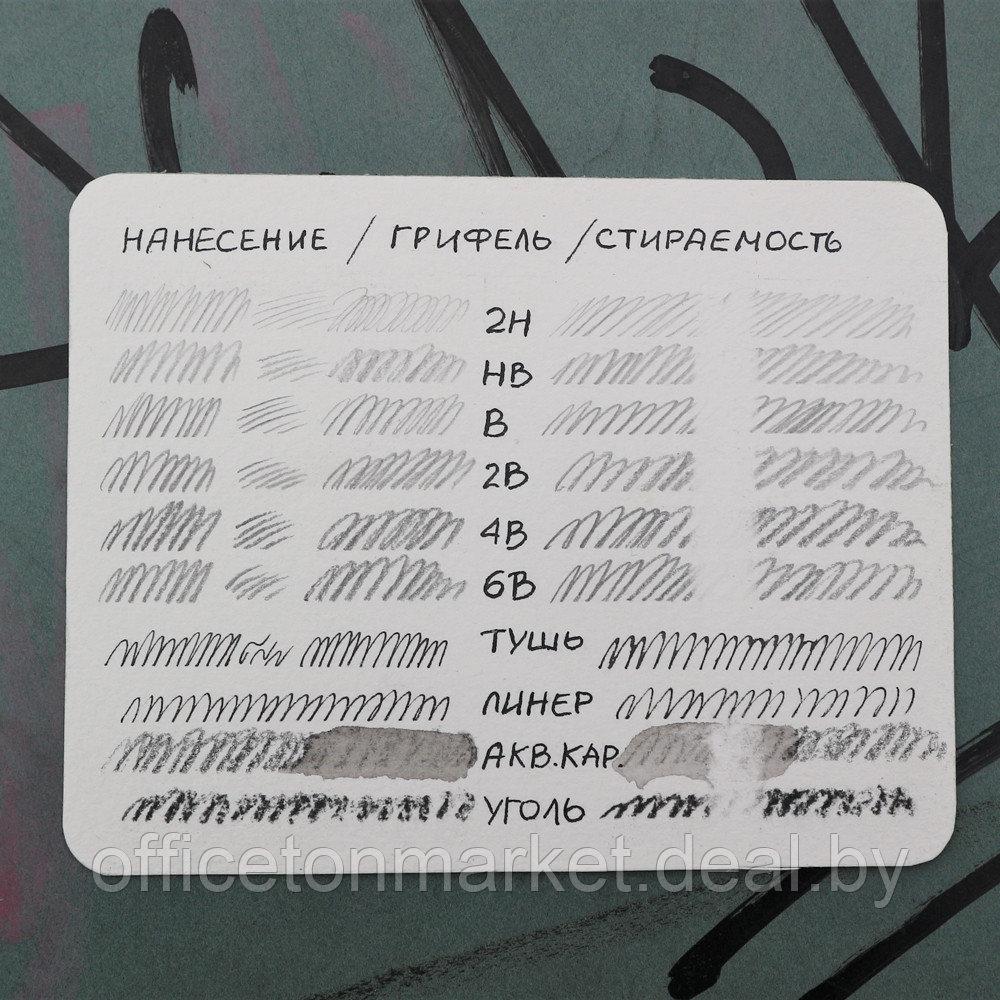 НАНЕСЕНИЕ / ГРИФЕЛЬ / СТИРАЕМОСТЬ
2H
HB
B
2B
4B
6B
ТУШЬ
ЛИНЕР
АКВ.КАР.
УГОЛЬ
officetonmarket.deal.by